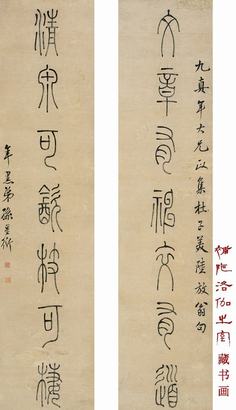 九真年大兄政集杜子美陸放翁句
文章有神交有道
清泉可㱃枝可棲
年愚弟孫星衍
陀洛伽之室
藏书画